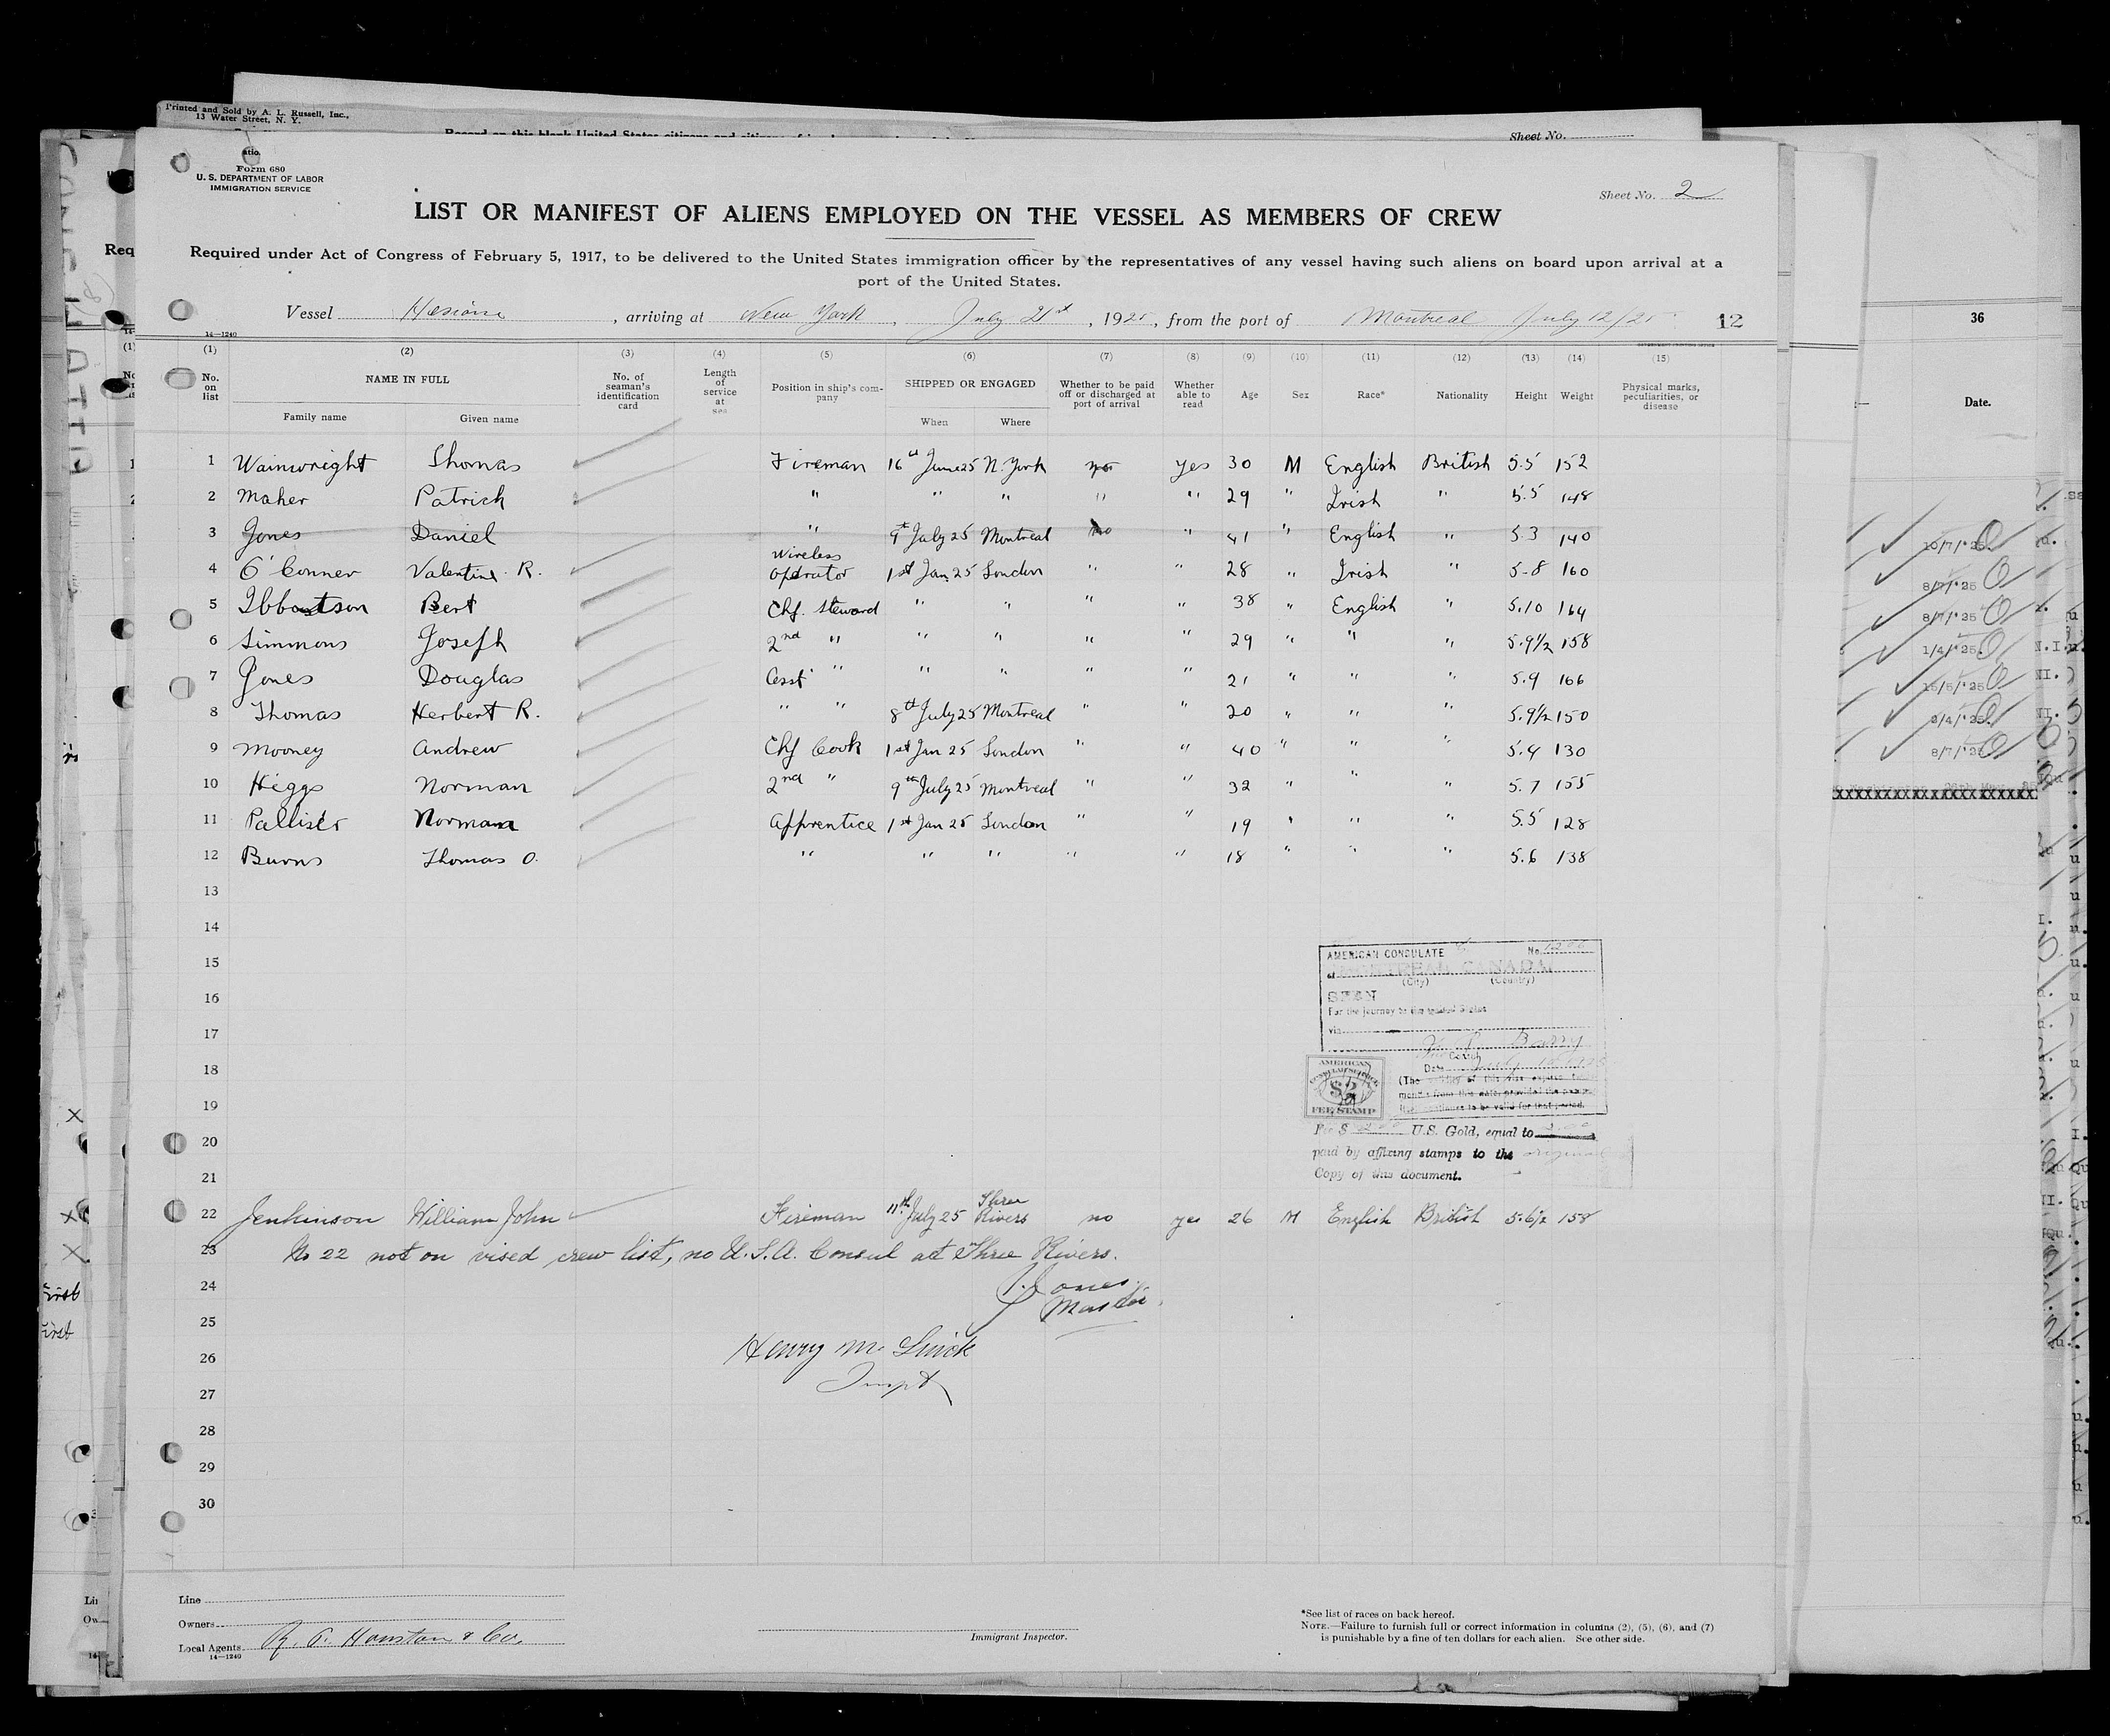 Printed and Sold by A. L. Russell, Inc.,
13 Water Street, N. Y.
Sheet No.
Form 680
U. S. DEPARTMENT OF LABOR
IMMIGRATION SERVICE
Sheet No. 2
LIST OR MANIFEST OF ALIENS EMPLOYED ON THE VESSEL AS MEMBERS OF CREW
Required under Act of Congress of February 5, 1917, to be delivered to the United States immigration officer by the representatives of any vessel having such aliens on board upon arrival at a
port of the United States.
Vessel Hesione, arriving at New York, July 21st, 1925, from the port of Montreal July 12/25 12
14—1240
(1) (2) (3) (4) (5) (6) (7) (8) (9) (10) (11) (12) (13) (14) (15)
No. on list NAME IN FULL Family name Given name No. of seaman's identification card Length of service at sea Position in ship's company SHIPPED OR ENGAGED When Where Whether to be paid off or discharged at port of arrival Whether able to read Age Sex Race* Nationality Height Weight Physical marks, peculiarities, or disease
1 Wainwright Thomas Fireman 16th June 25 N. York yes 30 M English British 5.5 152
2 Maher Patrick " " " " " 29 " Irish " 5.5 148
3 Jones Daniel " 9th July 25 Montreal no " 41 " English " 5.3 140
4 O'Conner Valentine R. Wireless Operator 1st Jan 25 London " " 28 " Irish " 5-8 160
5 Ibbotson Bert Chf. Steward " " " " 38 " English " 5.10 164
6 Simmons Joseph 2nd " " " " " 29 " " " 5.9½ 158
7 Jones Douglas Asst " " " " " 21 " " " 5.9 166
8 Thomas Herbert R. " " 8th July 25 Montreal " " 20 " " " 5.9½ 150
9 Mooney Andrew Chf Cook 1st Jan 25 London " " 40 " " " 5.4 130
10 Higgs Norman 2nd " 9th July 25 Montreal " " 32 " " 5.7 155
11 Pallister Norman Apprentice 1st Jan 25 London " " 19 " " " 5.5 128
12 Burns Thomas O. " " " " " 18 " " " 5.6 138
13
14
15
16
17
18
19
20
21
AMERICAN CONSULATE No.
at MONTREAL, CANADA.
(City) (Country)
SEEN
For the journey to the United States
via
Barry
Date July
AMERICAN CONSULAR SERVICE $2 FEE STAMP
Fee $ U.S. Gold, equal to
paid by affixing stamps to the original
Copy of this document.
22 Jenkinson William John Fireman 11th July 25 Three Rivers no yes 26 M English British 5.6½ 158
23 No 22 not on vised crew list, no U.S.A. Consul at Three Rivers.
24 Jones
Master.
25
26 Henry M.
27 Inspt
28
29
30
Line
Owners
Local Agents R. P. Houston & Co.
14—1240
Immigrant Inspector.
*See list of races on back hereof.
NOTE.—Failure to furnish full or correct information in columns (2), (5), (6), and (7)
is punishable by a fine of ten dollars for each alien. See other side.
36
Date.
10/7/'25.
8/7/'25
8/7/'25
1/4/'25.
15/5/'25
8/7/'25